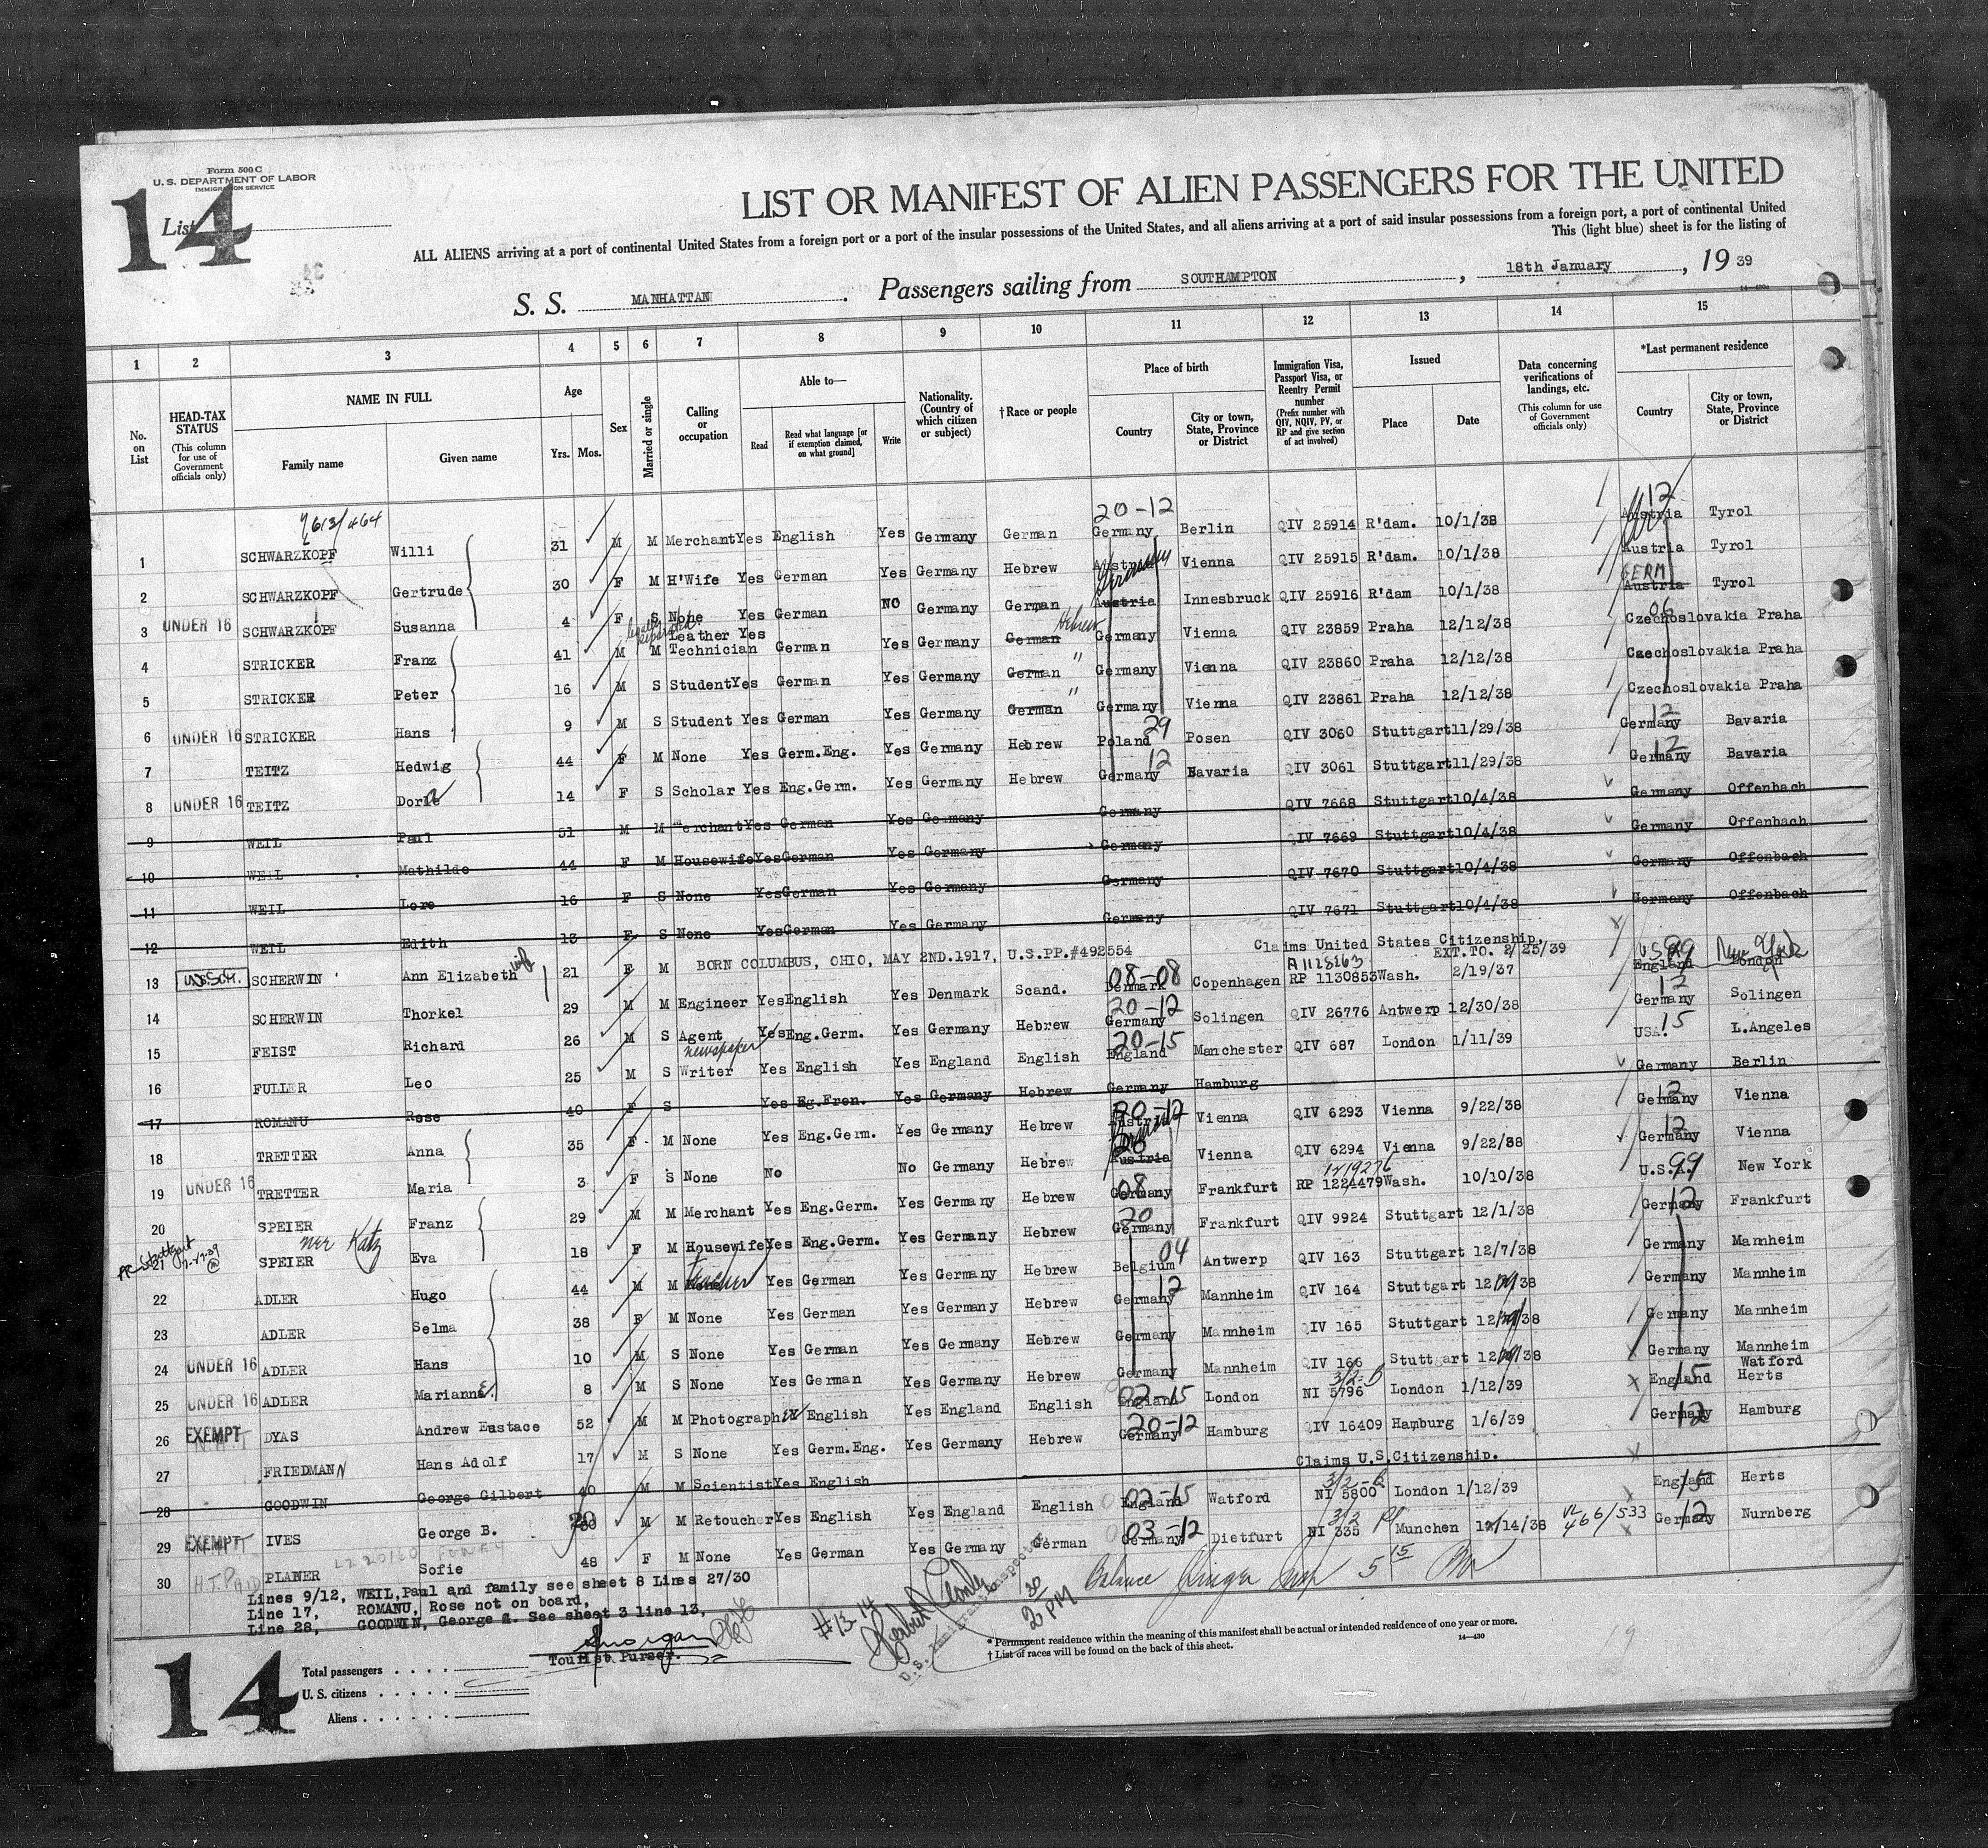 Form 500 C
U. S. DEPARTMENT OF LABOR
IMMIGRATION SERVICE
14
List
LIST OR MANIFEST OF ALIEN PASSENGERS FOR THE UNITED
ALL ALIENS arriving at a port of continental United States from a foreign port or a port of the insular possessions of the United States, and all aliens arriving at a port of said insular possessions from a foreign port, a port of continental United
This (light blue) sheet is for the listing of
S. S. MANHATTAN. Passengers sailing from SOUTHAMPTON, 18th January, 19 39
1 2 3 4 5 6 7 8 9 10 11 12 13 14 15
No. on List
HEAD-TAX STATUS (This column for use of Government officials only)
NAME IN FULL
Family name Given name
Age
Yrs. Mos.
Sex
Married or single
Calling or occupation
Able to—
Read Read what language [or if exemption claimed, on what ground] Write
Nationality. (Country of which citizen or subject)
†Race or people
Place of birth
Country City or town, State, Province or District
Immigration Visa, Passport Visa, or Reentry Permit number (Prefix number with QIV, NQIV, PV, or RP and give section of act involved)
Issued
Place Date
Data concerning verifications of landings, etc. (This column for use of Government officials only)
*Last permanent residence
Country City or town, State, Province or District
1 SCHWARZKOPF Willi 31 M M Merchant Yes English Yes Germany German 20-12 Germany Berlin QIV 25914 R'dam. 10/1/38 12 Austria Tyrol
2 SCHWARZKOPF Gertrude 30 F M H'Wife Yes German Yes Germany Hebrew Austria Germany Vienna QIV 25915 R'dam. 10/1/38 Austria Tyrol
3 UNDER 16 SCHWARZKOPF Susanna 4 F S None Yes German NO Germany German Austria Innesbruck QIV 25916 R'dam 10/1/38 GERM Austria Tyrol
4 STRICKER Franz 41 M M legally separated Leather Technician Yes German Yes Germany German Hebrew Germany Vienna QIV 23859 Praha 12/12/38 06 Czechoslovakia Praha
5 STRICKER Peter 16 M S Student Yes German Yes Germany German " Germany Vienna QIV 23860 Praha 12/12/38 Czechoslovakia Praha
6 UNDER 16 STRICKER Hans 9 M S Student Yes German Yes Germany German " Germany Vienna QIV 23861 Praha 12/12/38 Czechoslovakia Praha
7 TEITZ Hedwig 44 F M None Yes Germ.Eng. Yes Germany Hebrew 29 Poland Posen QIV 3060 Stuttgart 11/29/38 12 Germany Bavaria
8 UNDER 16 TEITZ Doris 14 F S Scholar Yes Eng.Germ. Yes Germany Hebrew 12 Germany Bavaria QIV 3061 Stuttgart 11/29/38 12 Germany Bavaria
9 WEIL Paul 51 M M Merchant Yes German Yes Germany Germany QIV 7668 Stuttgart 10/4/38 Germany Offenbach
10 WEIL Mathilde 44 F M Housewife Yes German Yes Germany Germany QIV 7669 Stuttgart 10/4/38 Germany Offenbach
11 WEIL Lore 16 F S None Yes German Yes Germany Germany QIV 7670 Stuttgart 10/4/38 Germany Offenbach
12 WEIL Edith 13 F S None Yes German Yes Germany Germany QIV 7671 Stuttgart 10/4/38 Germany Offenbach
13 SCHERWIN Ann Elizabeth wife 21 F M BORN COLUMBUS, OHIO, MAY 2ND.1917, U.S.PP.#492554 Claims United States Citizenship. USA England New York London
14 SCHERWIN Thorkel 29 M M Engineer Yes English Yes Denmark Scand. 08-08 Denmark Copenhagen RP 1130853 Wash. 2/19/37 EXT.TO. 2/25/39
15 FEIST Richard 26 M S Agent Yes Eng.Germ. Yes Germany Hebrew 20-12 Germany Solingen QIV 26776 Antwerp 12/30/38 12 Germany Solingen
16 FULLER Leo 25 M S newspaper Writer Yes English Yes England English 20-15 England Manchester QIV 687 London 1/11/39 15 USA. L.Angeles
17 ROMANU Rose 40 F S Yes Eg.Fren. Yes Germany Hebrew Germany Hamburg Germany Berlin
18 TRETTER Anna 35 F M None Yes Eng.Germ. Yes Germany Hebrew 20-12 Austria Germany Vienna QIV 6293 Vienna 9/22/38 12 Germany Vienna
19 UNDER 16 TRETTER Maria 3 F S None No No Germany Hebrew 20 Austria Vienna QIV 6294 Vienna 9/22/38 12 Germany Vienna
20 SPEIER Franz 29 M M Merchant Yes Eng.Germ. Yes Germany Hebrew 08 Germany Frankfurt RP 1224479 Wash. 10/10/38 99 U.S.A. New York
21 SPEIER nee Katz Eva 18 F M Housewife Yes Eng.Germ. Yes Germany Hebrew 20 Germany Frankfurt QIV 9924 Stuttgart 12/1/38 12 Germany Frankfurt
22 ADLER Hugo 44 M M None teacher Yes German Yes Germany Hebrew 04 Belgium Antwerp QIV 163 Stuttgart 12/7/38 Germany Mannheim
23 ADLER Selma 38 F M None Yes German Yes Germany Hebrew 12 Germany Mannheim QIV 164 Stuttgart 12/ /38 Germany Mannheim
24 UNDER 16 ADLER Hans 10 M S None Yes German Yes Germany Hebrew Germany Mannheim QIV 165 Stuttgart 12/ /38 Germany Mannheim
25 UNDER 16 ADLER Marianne 8 M S None Yes German Yes Germany Hebrew Germany Mannheim QIV 166 Stuttgart 12/ /38 Germany Mannheim
26 EXEMPT DYAS Andrew Eustace 52 M M Photograph Y English Yes England English 02-15 England London 3/2-B NI 5796 London 1/12/39 15 England Watford Herts
27 FRIEDMANN Hans Adolf 17 M S None Yes Germ.Eng. Yes Germany Hebrew 20-12 Germany Hamburg QIV 16409 Hamburg 1/6/39 12 Germany Hamburg
28 GOODWIN George Gilbert 40 M M Scientist Yes English Claims U.S.Citizenship.
29 EXEMPT IVES George B. 30 M M Retoucher Yes English Yes England English 02-15 England Watford 3/2-B NI 5800 London 1/12/39 15 England Herts
30 H.T. PAID PLANER Sofie 48 F M None Yes German Yes Germany German 03-12 Germany Dietfurt 3/2 NI 335 Munchen 12/14/38 466/533 12 Germany Nurnberg
Lines 9/12, WEIL, Paul and family see sheet 8 Lines 27/30
Line 17, ROMANU, Rose not on board,
Line 28, GOODWIN, George G. See sheet 3 line 13,
Tourist Purser.
#13-14
U.S. Immigrant Inspector
2 30 PM
14
Total passengers
U. S. citizens
Aliens
* Permanent residence within the meaning of this manifest shall be actual or intended residence of one year or more.
† List of races will be found on the back of this sheet.
14—430